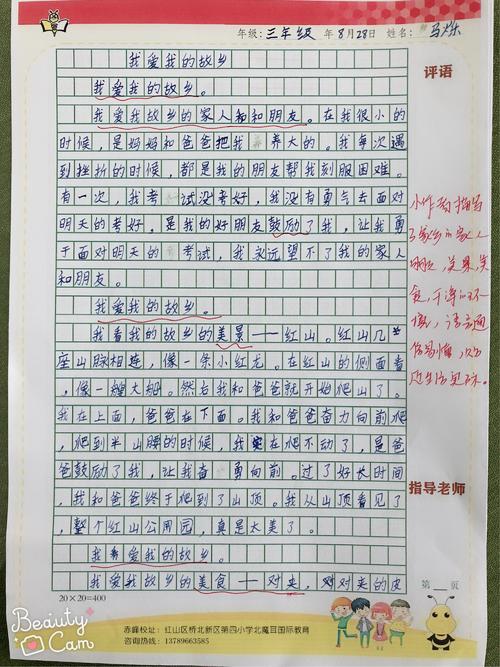 年级：三年级 年8月28日 姓名：马烁
我爱我的故乡
评语
我爱我的故乡。
我爱我故乡的家人和和朋友。在我很小的
时候，是妈妈和爸爸把我养大的。我每次遇
到挫折的时候，都是我的朋友帮我刻服困难。
有一次，我考试没考好，我没有勇气去面对
明天的考好。是我的好朋友鼓励了我，让我勇
于面对明天的考试，我永远望不了我的家人
和朋友。
我爱我的故乡。
我看我的故乡的美景——红山。红山几
座山脉相连，像一条小红龙。在红山的侧面看
，像一艘大船。然后我和爸爸就开始爬山了。
我在上面，爸爸在下面。我和爸爸奋力向前爬
，爬到半山腰的时候，我实在爬不动了，是爸
爸鼓励了我，让我奋勇向前。过了好长时间
，我和爸爸终于爬到了山顶。我从山顶看见了
，整个红山公用园，真是太美了。
我爱我的故乡。
我爱我故乡的美食——对夹，对对夹的皮
小作者描写
了家乡的家人
朋友，美景，美
食，干净的环
境，语言通
俗易懂，
指导老师
20×20=400
第 页
赤峰校址：红山区桥北新区第四小学北魔耳国际教育
咨询热线：13789663585
Beauty
Cam